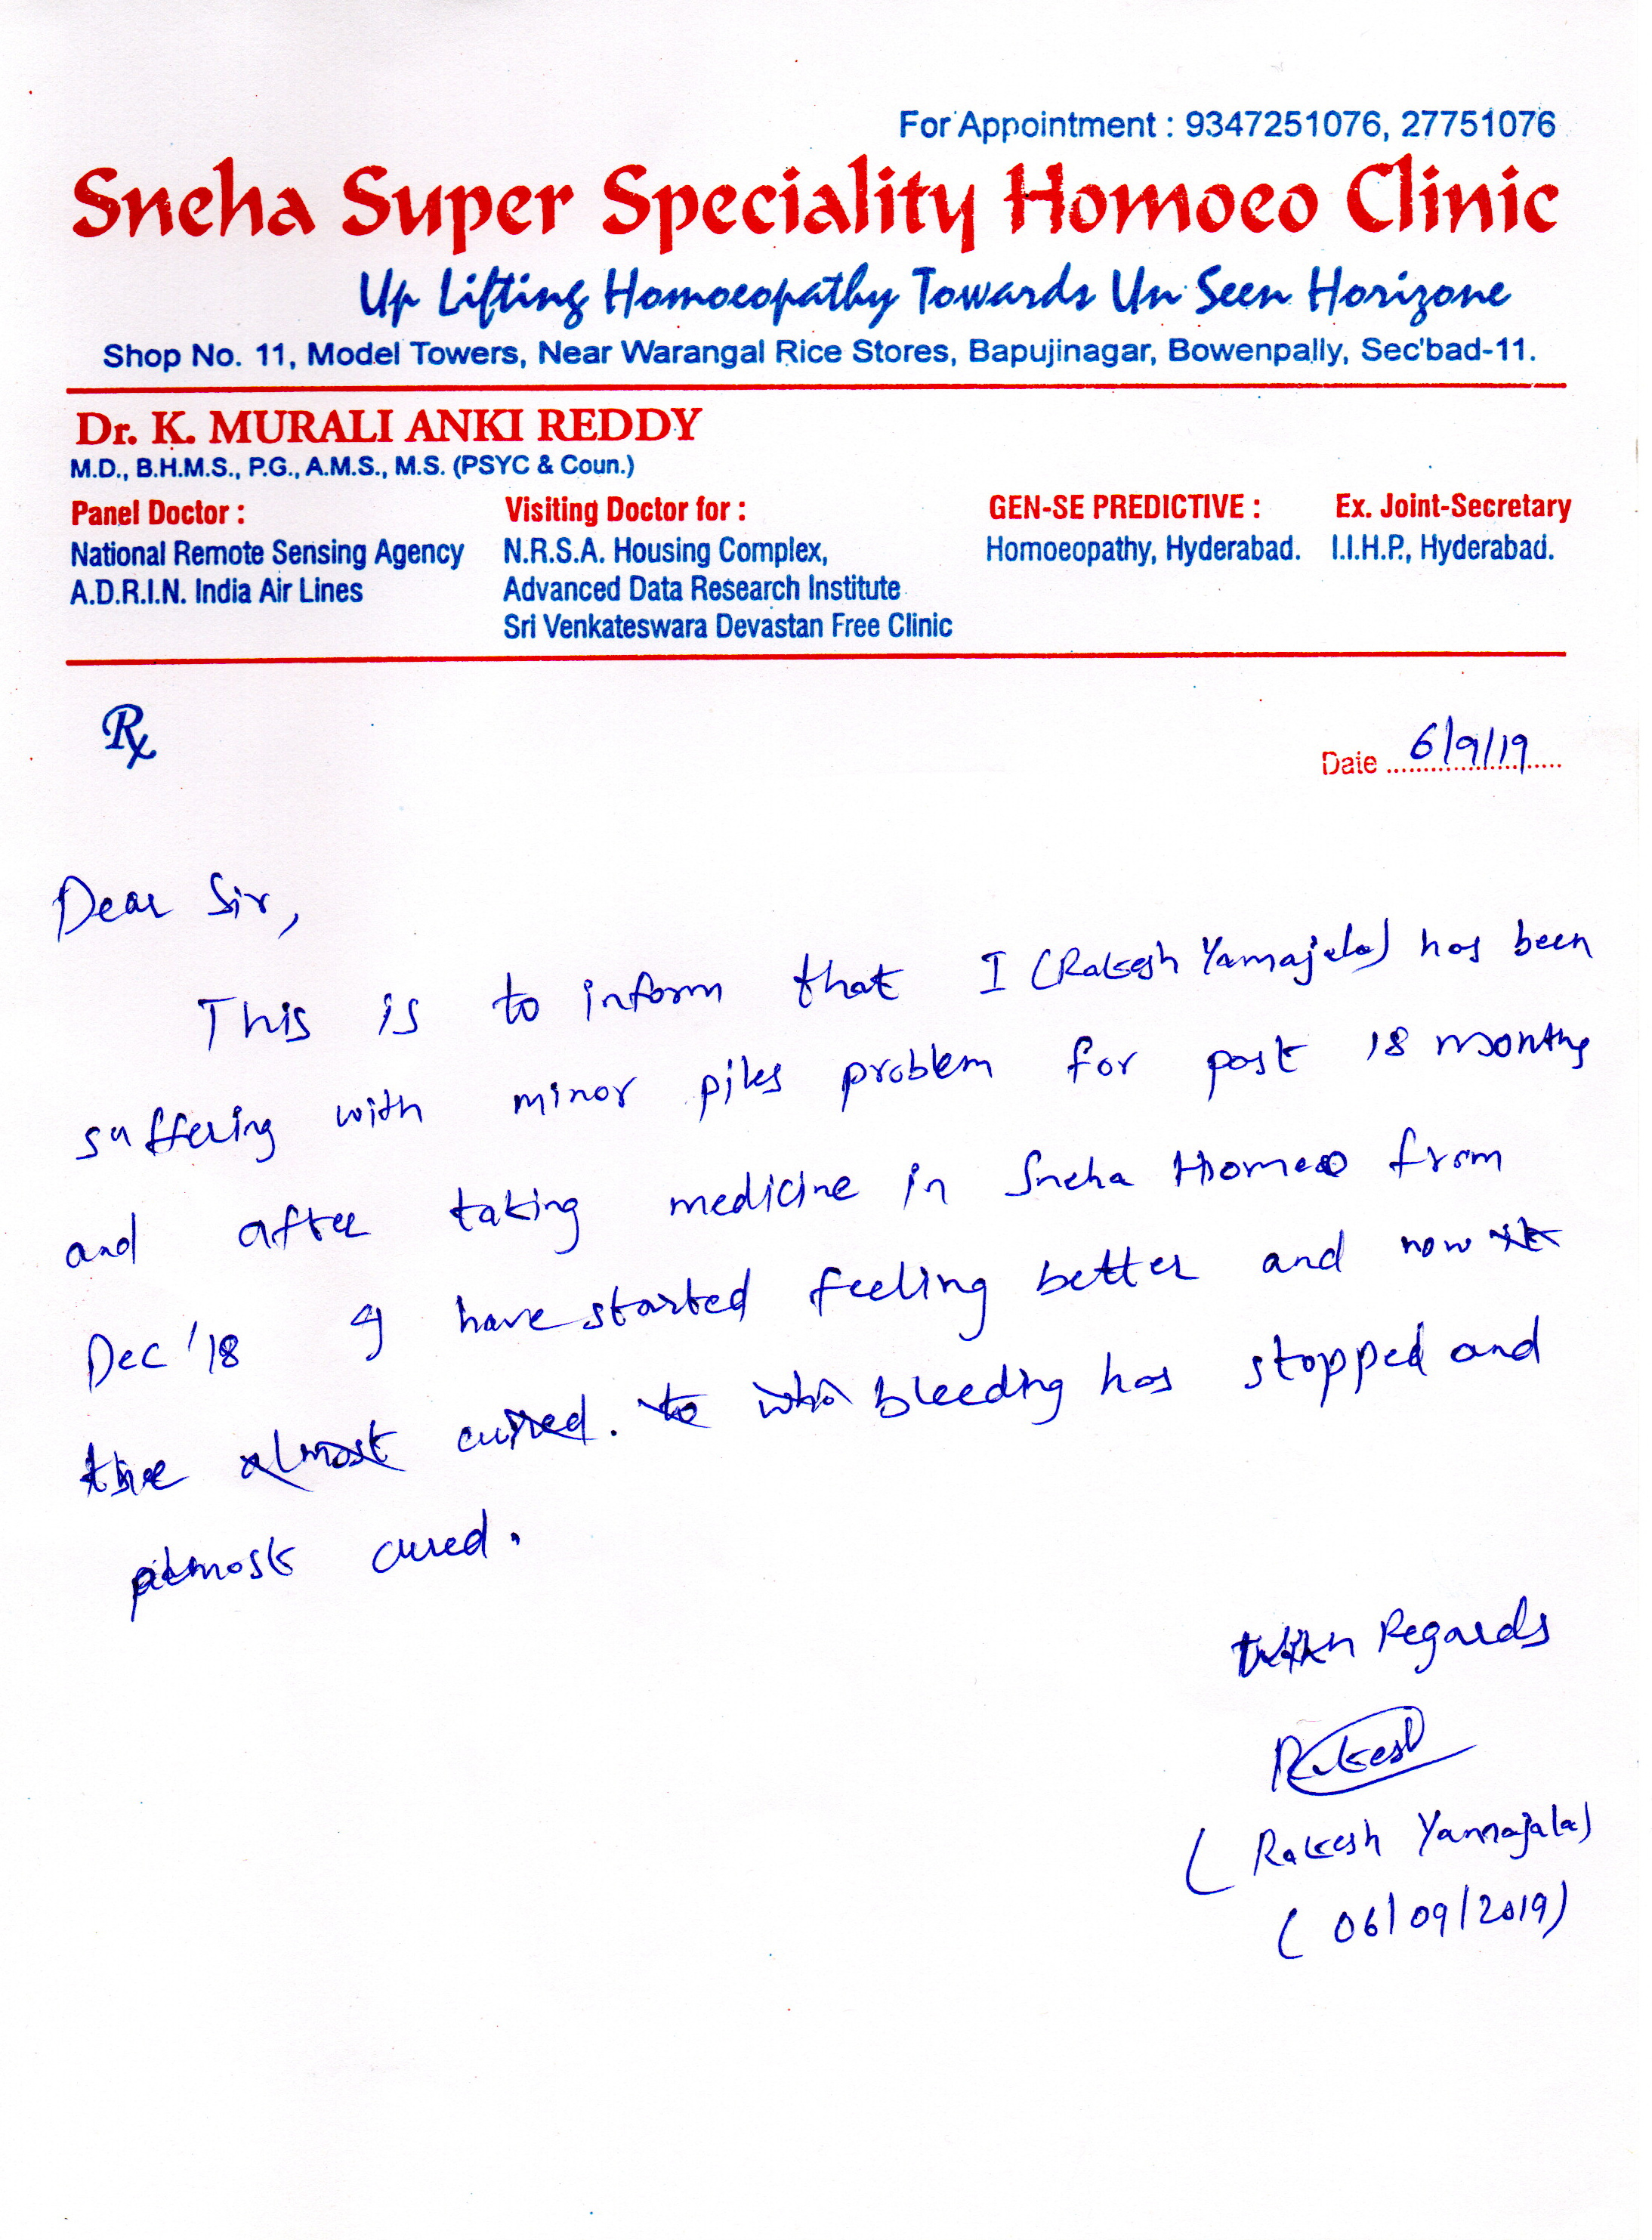 For Appointment : 9347251076, 27751076
Sneha Super Speciality Homoeo Clinic
Up Lifting Homoeopathy Towards Un Seen Horizone
Shop No. 11, Model Towers, Near Warangal Rice Stores, Bapujinagar, Bowenpally, Sec'bad-11.
Dr. K. MURALI ANKI REDDY
M.D., B.H.M.S., P.G., A.M.S., M.S. (PSYC & Coun.)
Panel Doctor :
National Remote Sensing Agency
A.D.R.I.N. India Air Lines
Visiting Doctor for :
N.R.S.A. Housing Complex,
Advanced Data Research Institute
Sri Venkateswara Devastan Free Clinic
GEN-SE PREDICTIVE :
Homoeopathy, Hyderabad.
Ex. Joint-Secretary
I.I.H.P., Hyderabad.
Rx
Date 6/9/19
Dear Sir,
This is to inform that I (Rakesh Yamajala) has been
suffering with minor piles problem for past 18 months
and after taking medicine in Sneha Homeo from
Dec '18 I have started feeling better and now
the almost cured. to bleeding has stopped and
almost cured.
With Regards
Rakesh
(Rakesh Yamajala)
(06/09/2019)